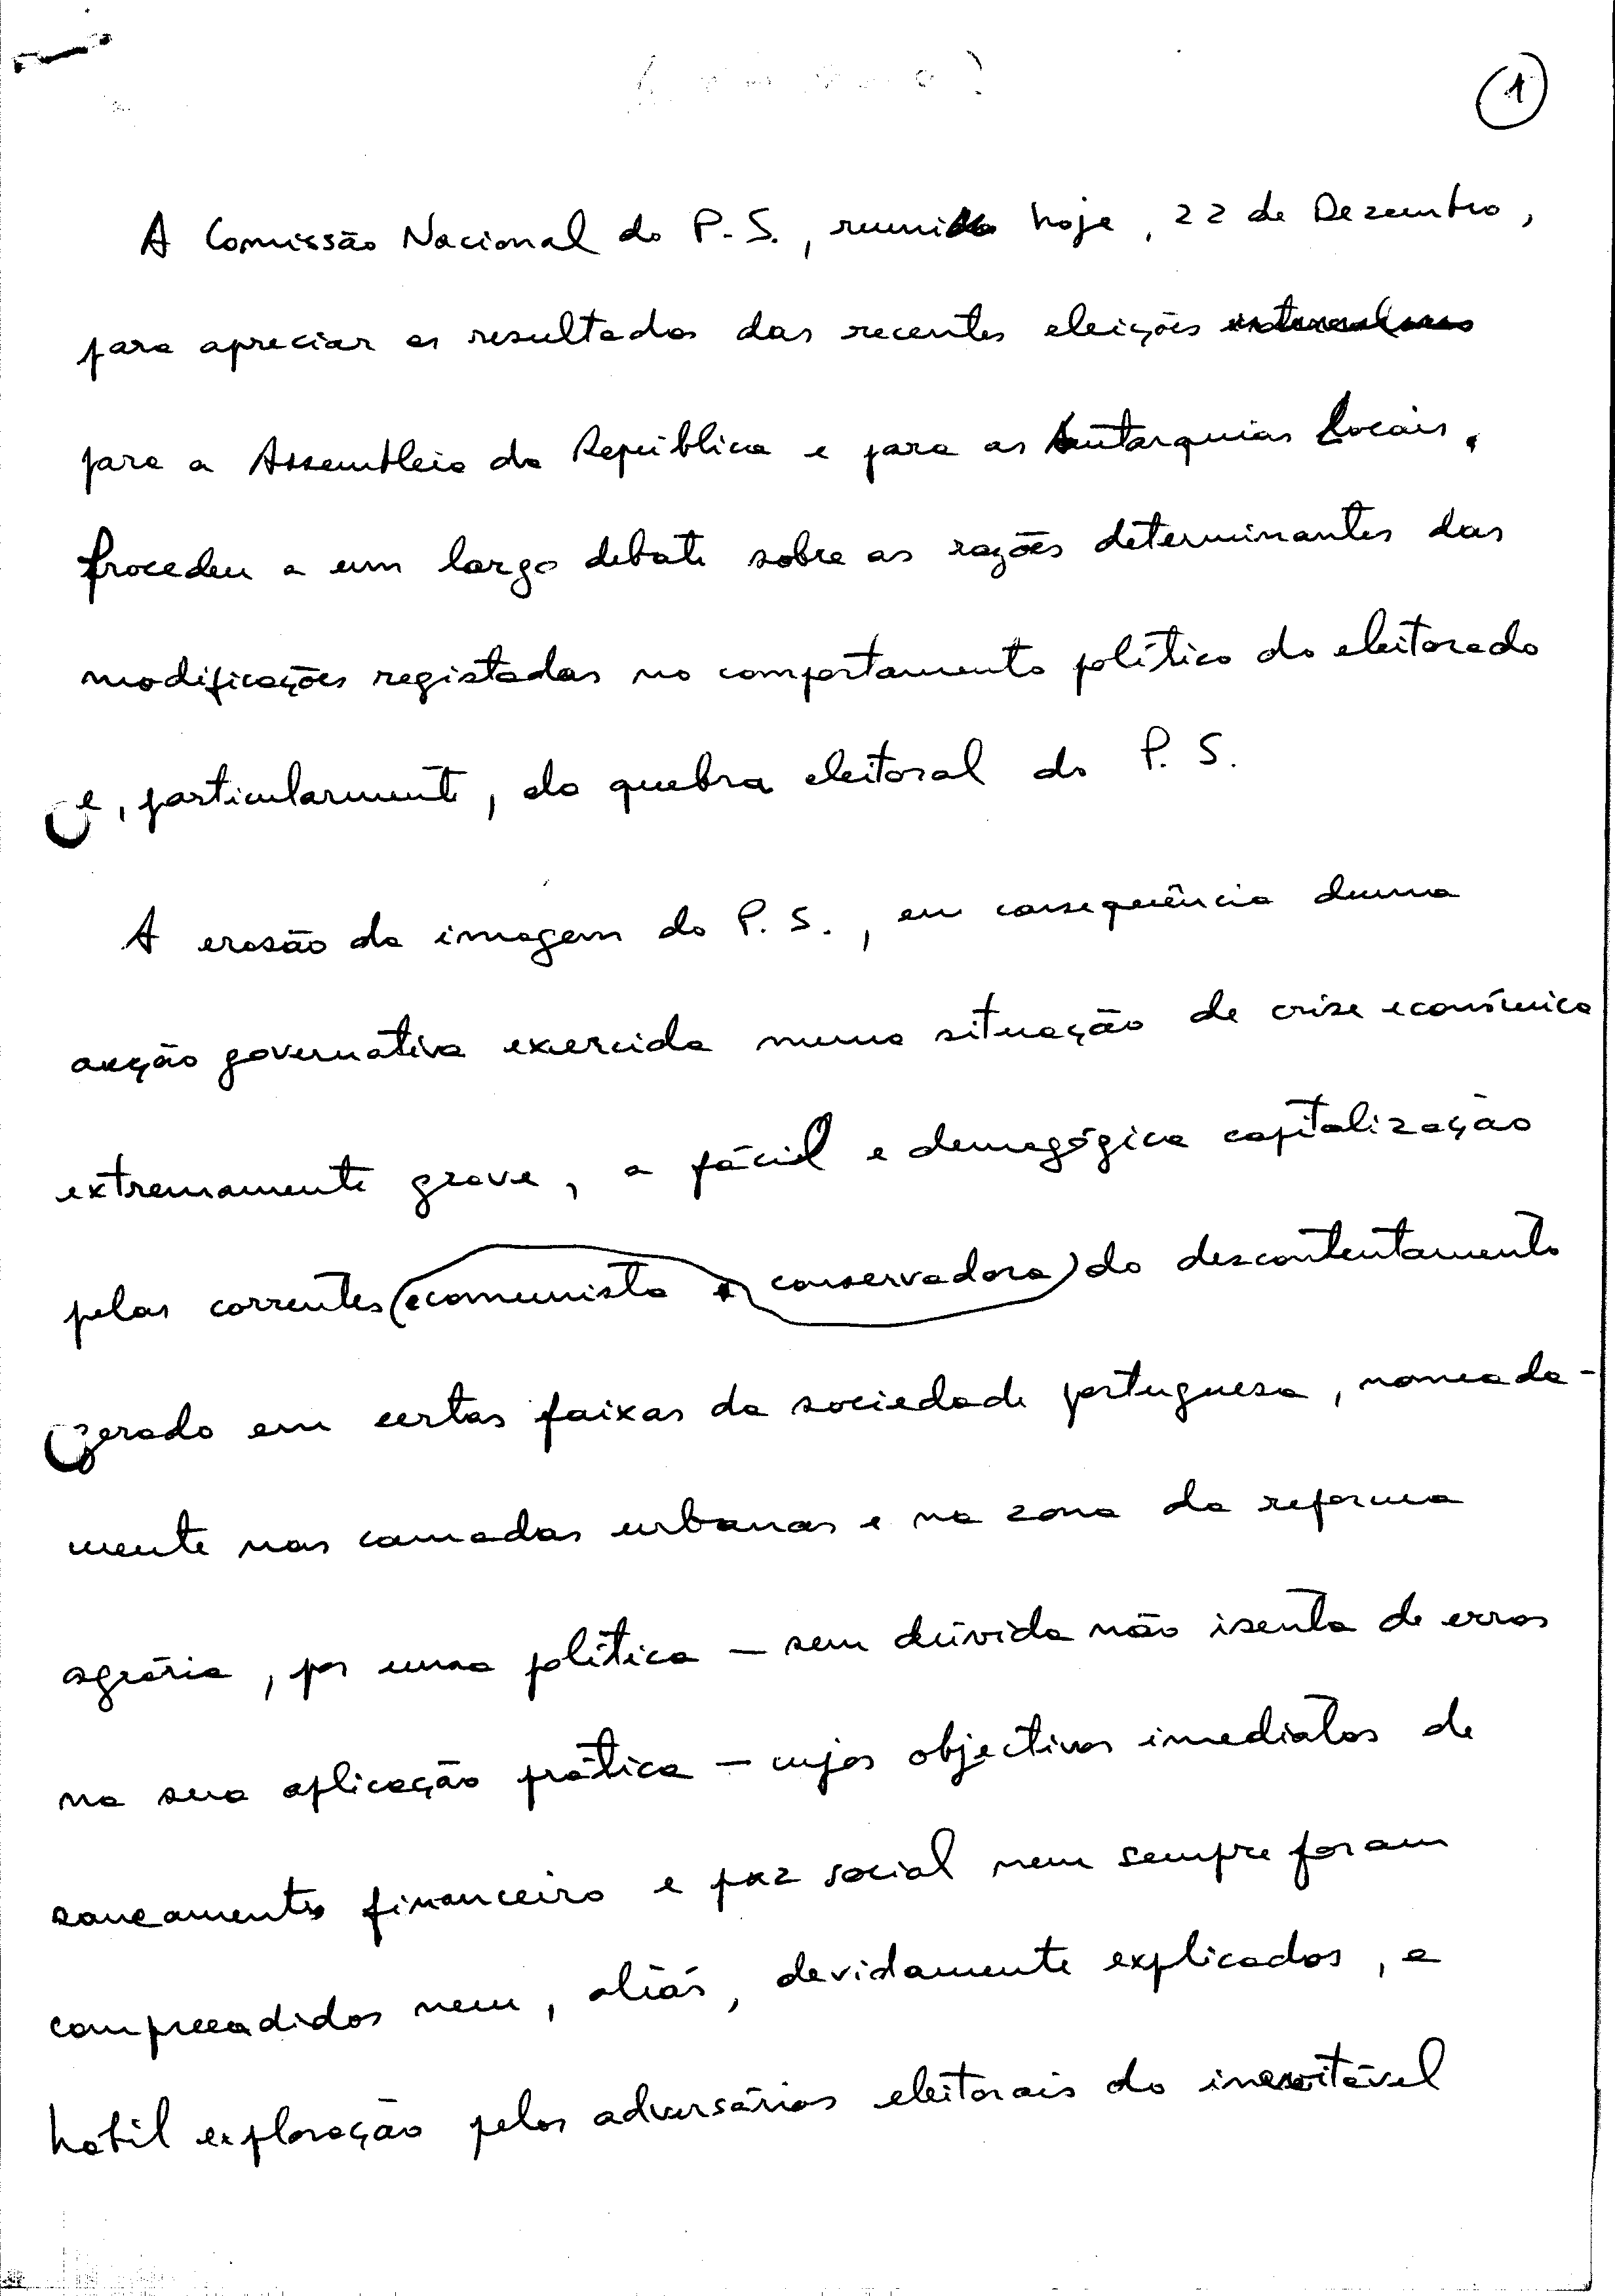 1
A Comissão Nacional do P.S., reunida hoje, 22 de Dezembro,
para apreciar os resultados das recentes eleições
para a Assembleia da República e para as Autarquias Locais,
procedeu a um largo debate sobre as razões determinantes das
modificações registadas no comportamento político do eleitorado
e, particularmente, da quebra eleitoral do P.S.
A erosão da imagem do P.S., em consequência duma
acção governativa exercida numa situação de crise económica
extremamente grave, a fácil e demagógica capitalização
pelas correntes comunista e conservadora do descontentamento
gerado em certas faixas da sociedade portuguesa, nomeada-
mente nas camadas urbanas e na zona da reforma
agrária, por uma política — sem dúvida não isenta de erros
na sua aplicação prática — cujos objectivos imediatos de
saneamento financeiro e paz social nem sempre foram
compreendidos nem, aliás, devidamente explicados, a
hábil exploração pelos adversários eleitorais do inevitável